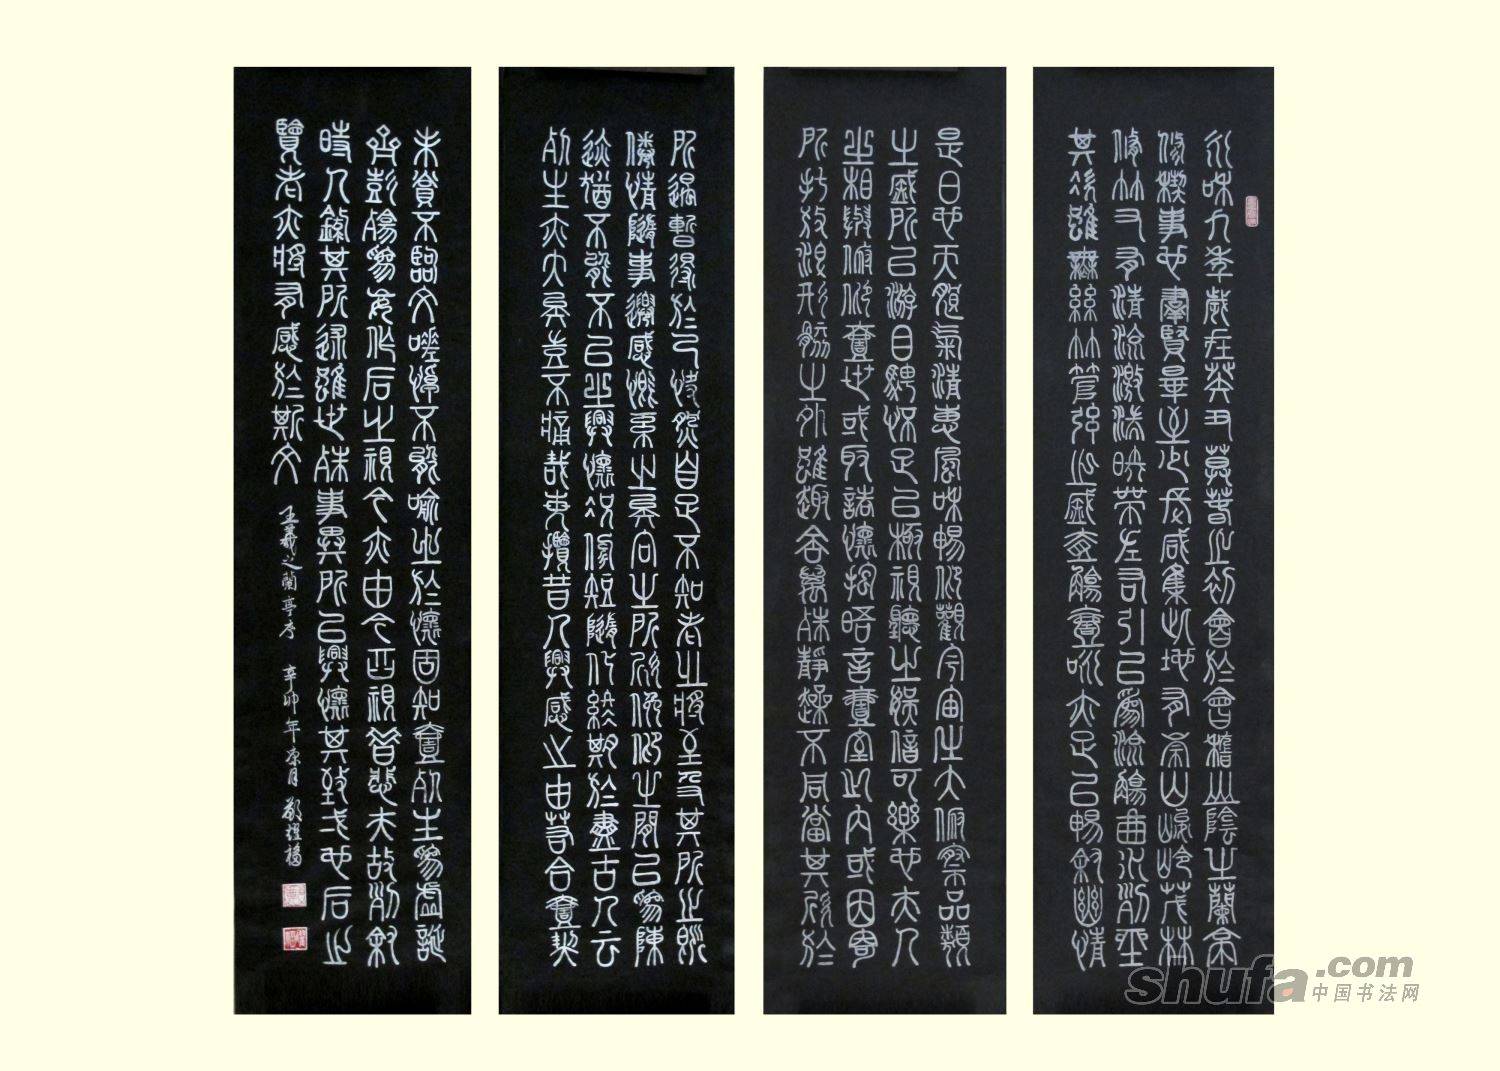 永和九年歲在癸丑莫春之初會於會稽山陰之蘭亭
修禊事也羣賢畢至少長咸集此地有崇山峻嶺茂林
修竹又有清流激湍映帶左右引以為流觴曲水列坐
其次雖無絲竹管弦之盛壹觴壹詠亦足以暢敘幽情
是日也天朗氣清惠風和暢仰觀宇宙之大俯察品類
之盛所以游目騁懷足以極視聽之娛信可樂也夫人
之相與俯仰壹世或取諸懷抱晤言壹室之內或因寄
所托放浪形骸之外雖趣舍萬殊靜躁不同當其欣於
所遇暫得於己快然自足不知老之將至及其所之既
倦情隨事遷感慨系之矣向之所欣俯仰之間以為陳
迹猶不能不以之興懷況修短隨化終期於盡古人云
死生亦大矣豈不痛哉每攬昔人興感之由若合壹契
未嘗不臨文嗟悼不能喻之於懷固知壹死生為虛誕
齊彭殤為妄作后之視今亦由今之視昔悲夫故列敘
時人錄其所述雖世殊事異所以興懷其致弌也后之
覽者亦將有感於斯文 王羲之蘭亭序 辛卯年
shufa.com
中国书法网